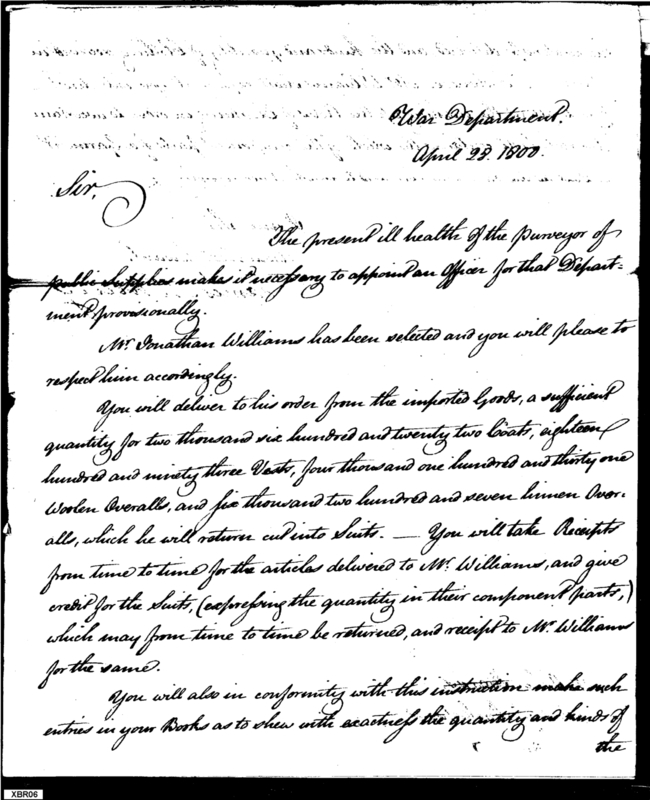 War Department.
April 23. 1800.
Sir,
The present ill health of the Purveyor of
public Supplies makes it necessary to appoint an Officer for that Depart-
ment provisionally.
Mr. Jonathan Williams has been selected and you will please to
respect him accordingly.
You will deliver to his order from the imported Goods, a sufficient
quantity for two thousand six hundred and twenty two Coats, eighteen
hundred and ninety three Vests, four thousand one hundred and thirty one
Woolen Overalls, and six thousand two hundred and seven linnen Over-
alls, which he will return cut into Suits. — You will take Receipts
from time to time for the articles delivered to Mr. Williams, and give
credit for the Suits, (expressing the quantity in their component parts,)
which may from time to time be returned, and receipt to Mr. Williams
for the same.
You will also in conformity with this instruction make such
entries in your Books as to shew with exactness the quantity and kinds of
the
XBR06